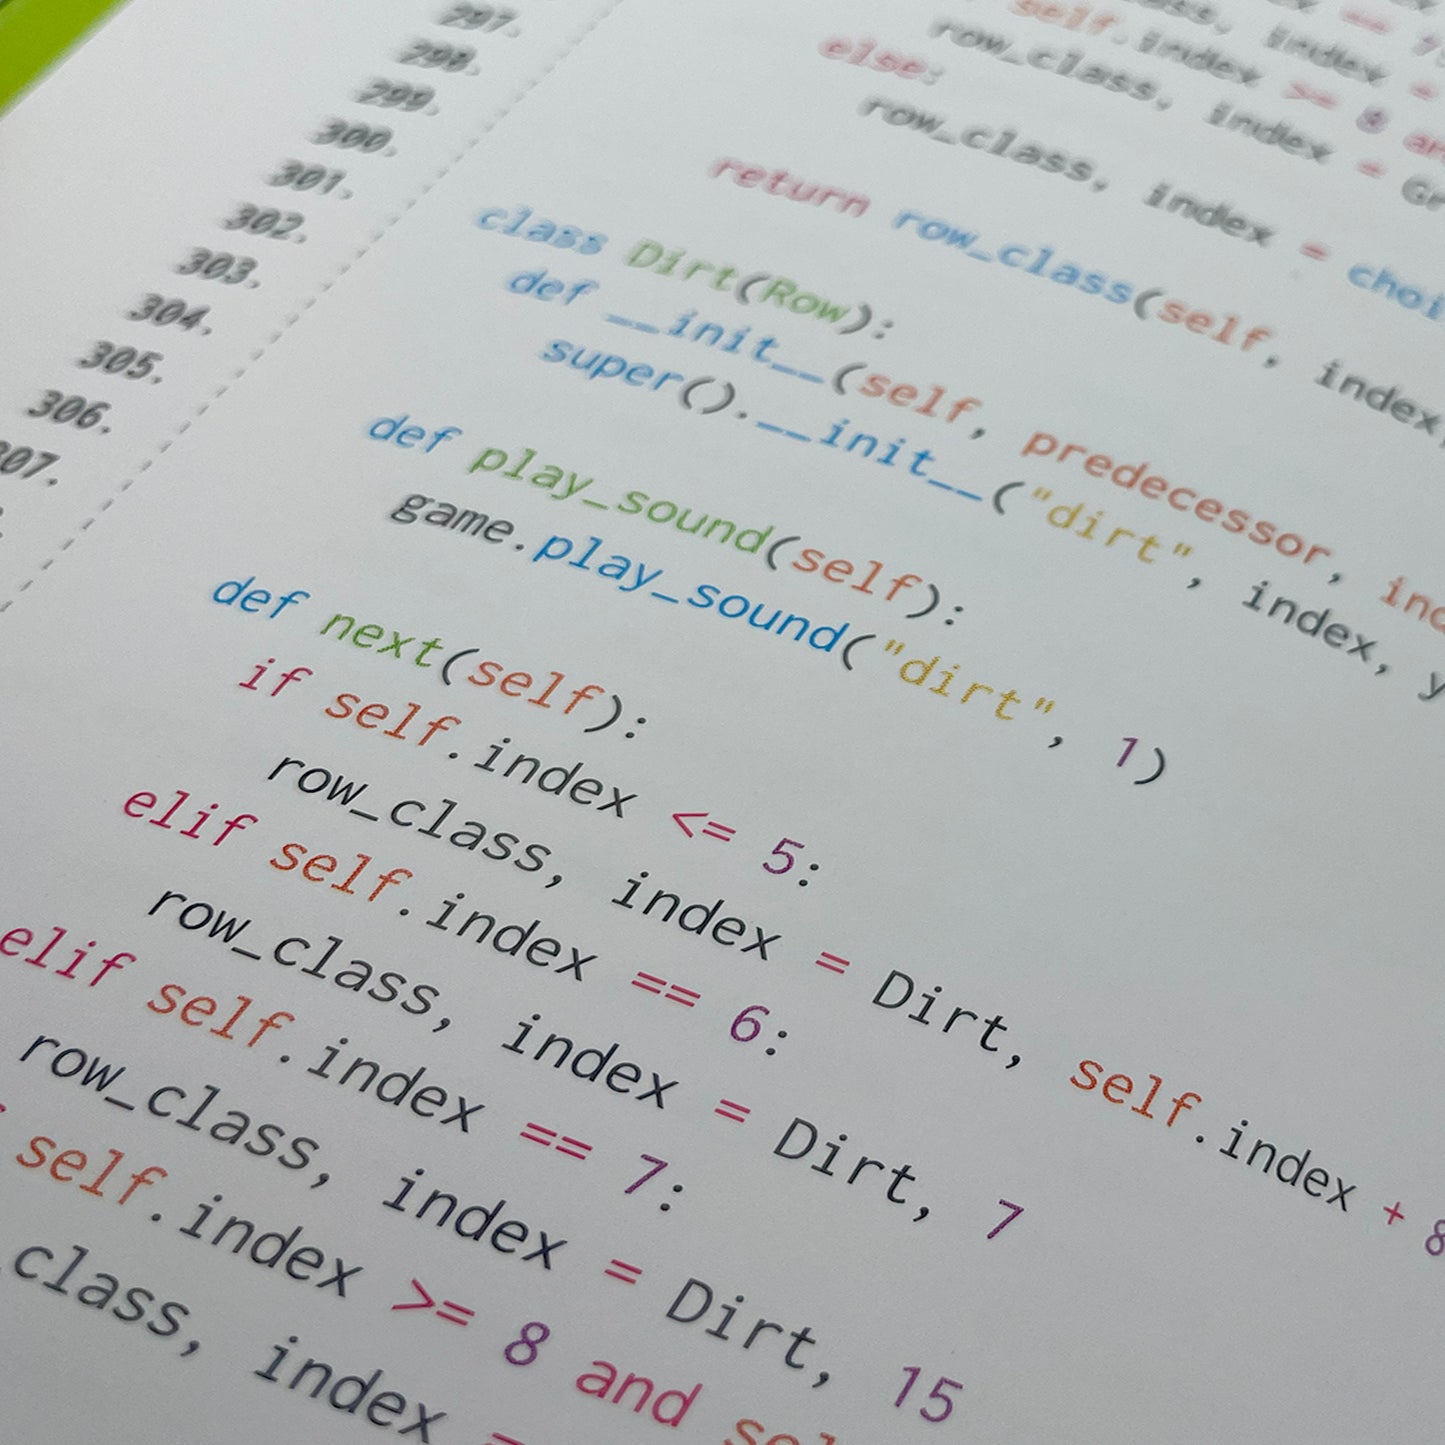 297.
298.
299.
300.
301.
302.
303.
304.
305.
306.
307.
self.index >= 8
row_class, index =
else:
row_class, index = Gr
row_class, index = choi
return row_class(self, index,
class Dirt(Row):
def __init__(self, predecessor, ind
super().__init__("dirt", index, y
def play_sound(self):
game.play_sound("dirt", 1)
def next(self):
if self.index <= 5:
row_class, index = Dirt, self.index + 8
elif self.index == 6:
row_class, index = Dirt, 7
elif self.index == 7:
row_class, index = Dirt, 15
self.index >= 8 and sel
class, index =